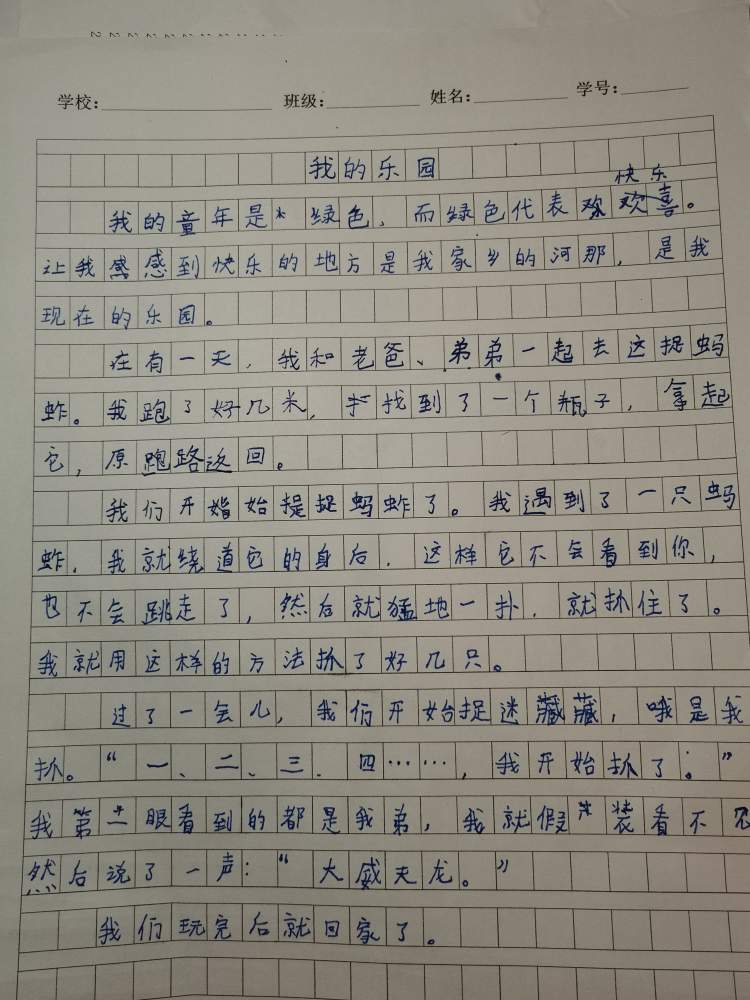 学校： 班级： 姓名： 学号：
我的乐园
快乐
我的童年是绿色，而绿色代表欢喜。
让我感感到快乐的地方是我家乡的河那，是我
现在的乐园。
在有一天，我和老爸、弟弟一起去这捉蚂
蚱。我跑了好几米，找到了一个瓶子，拿起
它，原跑路返回。
我们开始捉蚂蚱了。我遇到了一只蚂
蚱，我就绕道它的身后，这样它不会看到你，
也不会跳走了，然后就猛地一扑，就抓住了。
我就用这样的方法抓了好几只。
过了一会儿，我们开始捉迷藏藏，哦是我
抓。“一、二、三、四……，我开始抓了：”
我第一眼看到的都是我弟，我就假装看不见
然后说了一声：“大威天龙。”
我们玩完后就回家了。